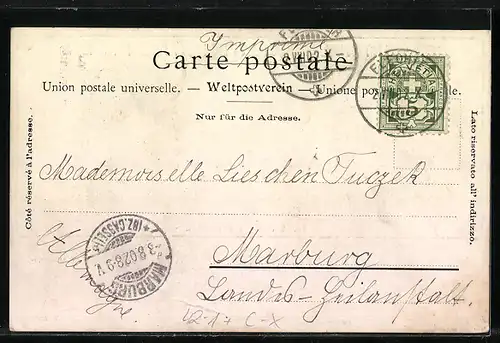 Imprimé
Carte postale
Union postale universelle. — Weltpostverein — Unione postale
Nur für die Adresse.
Côté réservé à l'adresse.
Lato riservato all' indirizzo.
Mademoiselle Lieschen Tuczek
Marburg
Landes-Heilanstalt.
Allemagne.
MARBURG
*(BZ.CASSEL)*
3.8.02.8-9V.
5